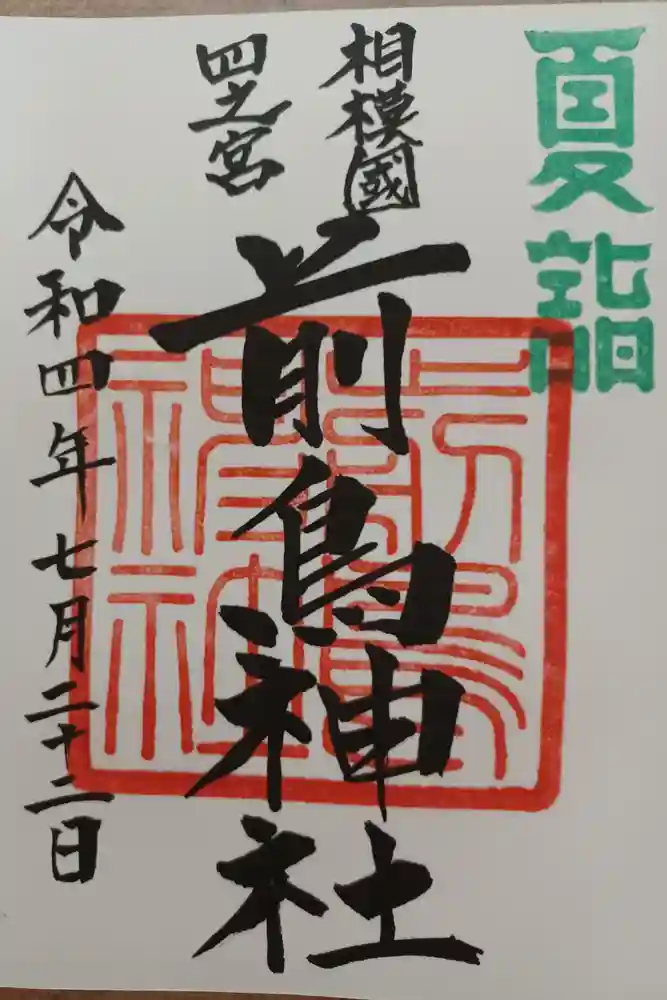 夏詣
相模國
四之宮
前鳥神社
令和四年七月二十二日
前鳥神社